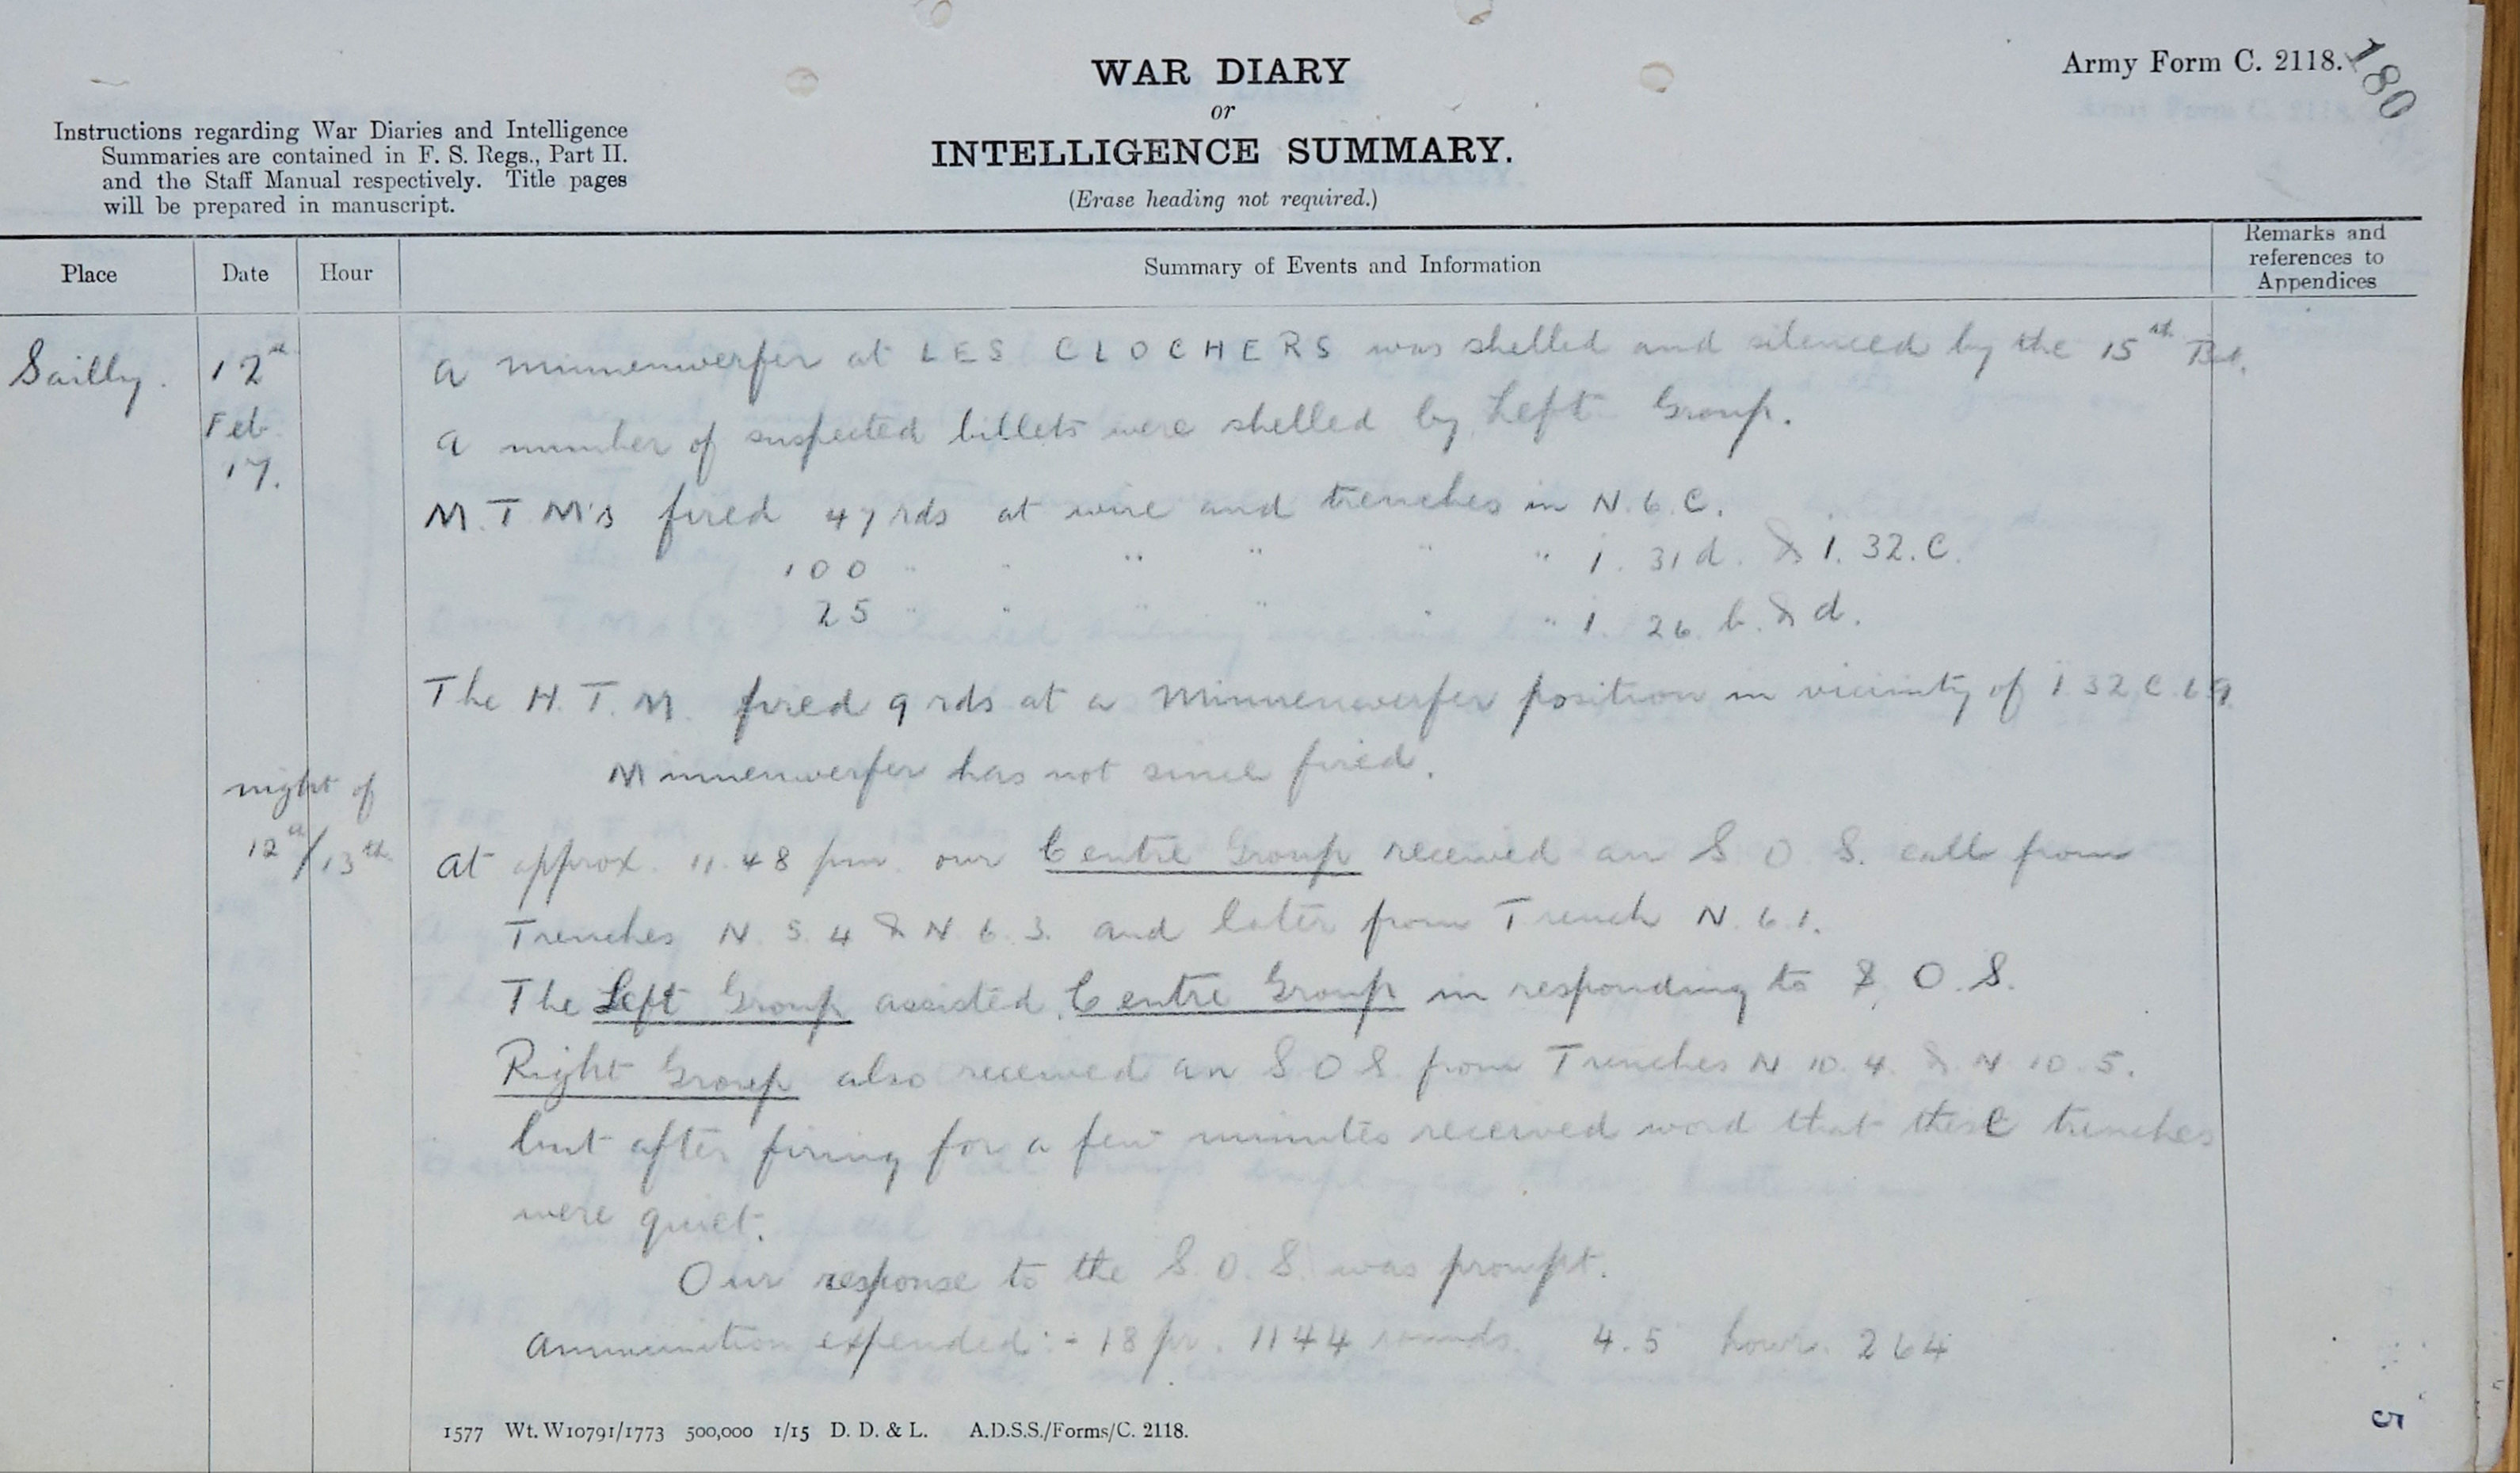 Army Form C. 2118.
180
WAR DIARY
or
INTELLIGENCE SUMMARY.
(Erase heading not required.)
Instructions regarding War Diaries and Intelligence
Summaries are contained in F. S. Regs., Part II.
and the Staff Manual respectively. Title pages
will be prepared in manuscript.
Place Date Hour Summary of Events and Information Remarks and references to Appendices
Sailly. 12th Feb 17.
A minnenwerfer at LES CLOCHERS was shelled and silenced by the 15th Bat.
A number of suspected billets were shelled by Left Group.
M.T.M's fired 47 rds at wire and trenches in N.6.C.
100 " " " " " " I. 31d. & I. 32.C.
25 " " " " " " I. 26. b. & d.
The H.T.M. fired 9 rds at a Minnenwerfer position in vicinity of I.32.C.6.9.
Minnenwerfer has not since fired.
night of
12th/13th
At approx. 11.48 pm our Centre Group received an S.O.S. call from
Trenches N.5.4 & N.6.3. and later from Trench N.6.1.
The Left Group assisted Centre Group in responding to S.O.S.
Right Group also received an S O S from Trenches N 10.4. & N 10.5.
but after firing for a few minutes received word that these trenches
were quiet.
Our response to the S.O.S. was prompt.
Ammunition expended:- 18 pr. 1144 rounds. 4.5 howr. 264
1577 Wt. W10791/1773 500,000 1/15 D. D. & L. A.D.S.S./Forms/C. 2118.
5